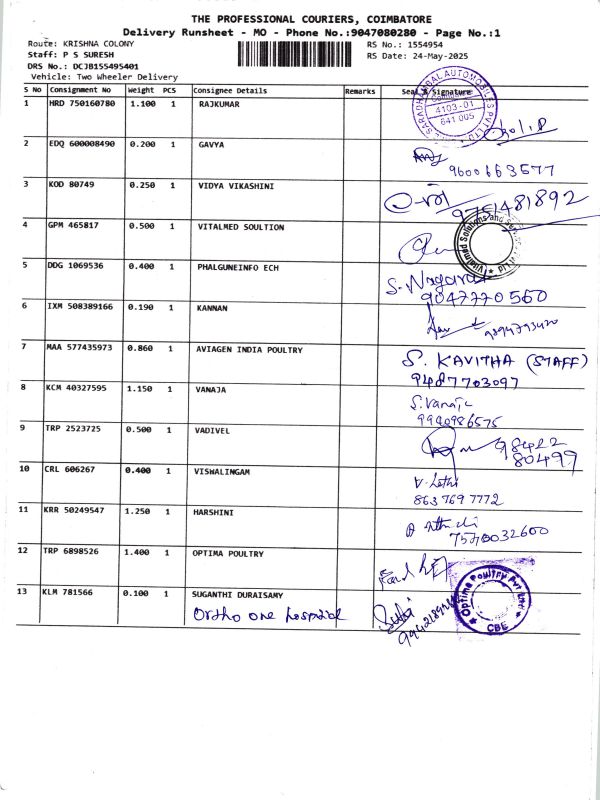 THE PROFESSIONAL COURIERS, COIMBATORE
Delivery Runsheet - MO - Phone No.:9047080280 - Page No.:1
Route: KRISHNA COLONY
RS No.: 1554954
Staff: P S SURESH
RS Date: 24-May-2025
DRS No.: DCJB155495401
Vehicle: Two Wheeler Delivery
S No Consignment No Weight PCS Consignee Details Remarks Seal & Signature
SARADHAMBAL AUTOMOBILES PVT LTD
4103-01
641 005
1 HRD 750160780 1.100 1 RAJKUMAR
2 EDQ 600008490 0.200 1 GAVYA
9600663577
3 KOD 80749 0.250 1 VIDYA VIKASHINI
9751481892
4 GPM 465817 0.500 1 VITALMED SOULTION
Vitalmed Solutions and Pvt Ltd
5 DDG 1069536 0.400 1 PHALGUNEINFO ECH
S. Nagaraj
9047770560
6 IXM 508389166 0.190 1 KANNAN
7 MAA 577435973 0.860 1 AVIAGEN INDIA POULTRY
S. KAVITHA (STAFF)
9487703097
8 KCM 40327595 1.150 1 VANAJA
S. Vanaja
9940986575
9 TRP 2523725 0.500 1 VADIVEL
98422
80499
10 CRL 606267 0.400 1 VISWALINGAM
863 769 7772
11 KRR 50249547 1.250 1 HARSHINI
12 TRP 6898526 1.400 1 OPTIMA POULTRY
13 KLM 781566 0.100 1 SUGANTHI DURAISAMY
Ortho one hospital
Optima Poultry Pvt Ltd
CBE